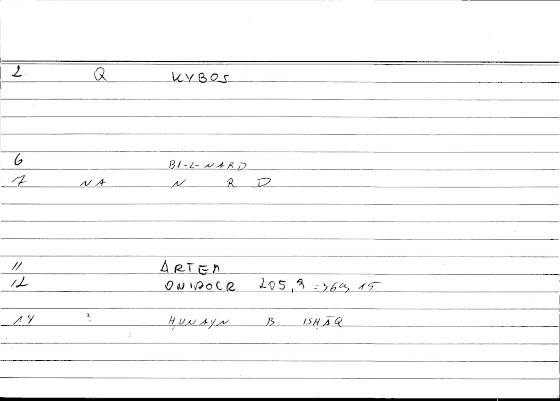 2 Q KYBOS
6 BI-L-NARD
7 NA N R D
11 ARTEM
12 ONIROCR 205,9 = 369,15
14 ḤUNAYN B. ISḤĀQ